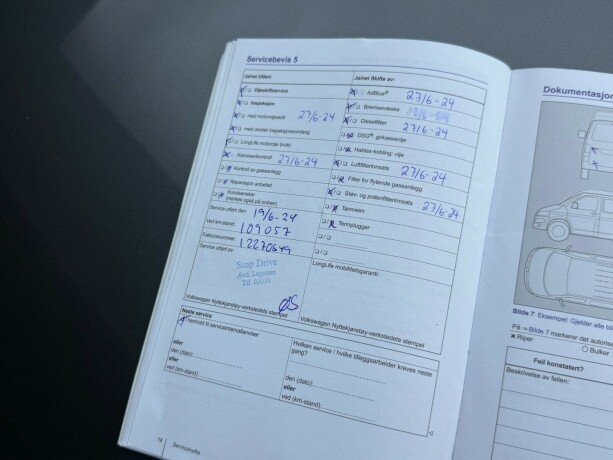 Servicebevis 5
Ja/nei Utført:
Oljeskiftservice
Inspeksjon
med motoroljeskift 27/6-24
med utvidet inspeksjonsomfang
LongLife motorolje brukt
Karosserikontroll 27/6-24
Kontroll av gassanlegg
Reparasjon anbefalt
Kundeønsker
(merkes også på ordren)
Service utført den: 19/6-24
ved km-stand: 109057
Fakturanummer:
Service utført av:
Snap Drive
Avd. Lagåsen
Tlf.
Volkswagen Nyttekjøretøy-verkstedets stempel
Ja/nei Skifte av:
AdBlue® 27/6-24
Bremsevæske
Dieselfilter 27/6-24
DSG® girkasseolje
Haldex-kobling: olje
Luftfilterinnsats 27/6-24
Filter for flytende gassanlegg
Støv- og pollenfilterinnsats 27/6-24
Tannreim
Tennplugger
LongLife mobilitetsgaranti:
Volkswagen Nyttekjøretøy-verkstedets stempel
Neste service
I henhold til serviceintervallanviser
eller
den (dato):
eller
ved (km-stand):
Hvilken service / hvilke tilleggsarbeider kreves neste
gang?
den (dato):
eller
ved (km-stand):
16 Servicehefte
Dokumentasjon
Bilde 7 Eksempel: Gjelder alle
På ⇒ Bilde 7 markerer det autorise
Riper
Bulker
Feil konstatert?
Beskrivelse av feilen: